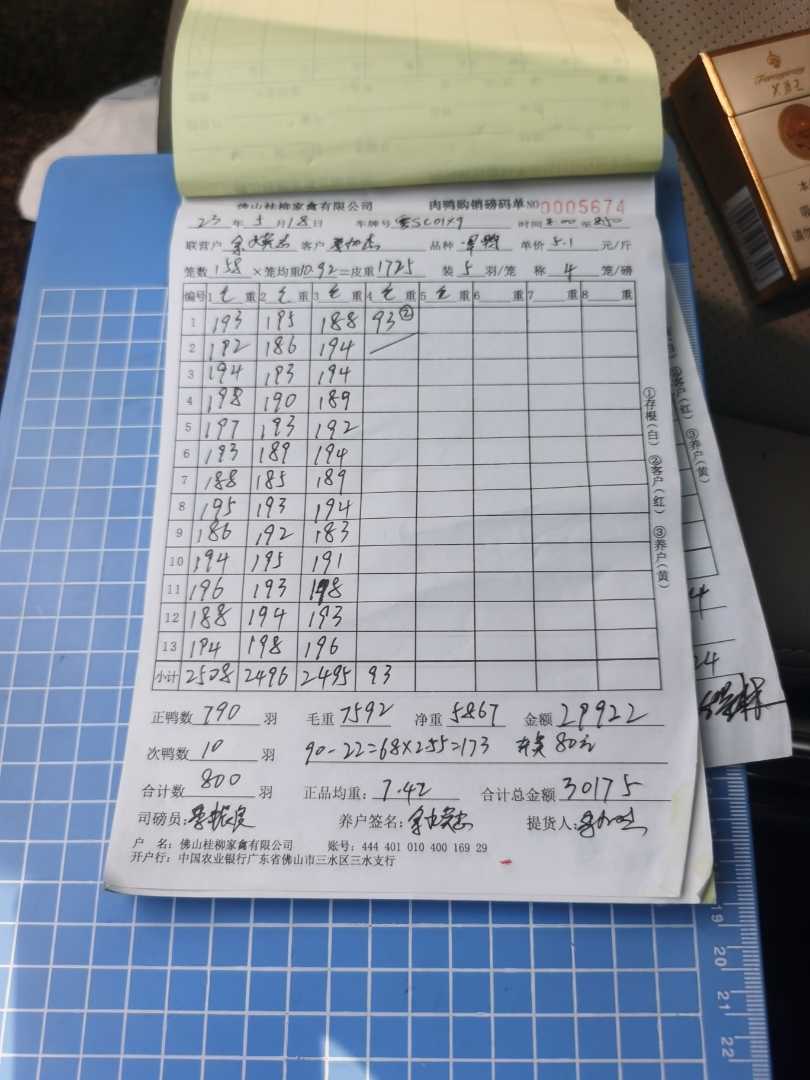 佛山桂柳家禽有限公司 肉鸭购销磅码单 NO 0005674
23 年 5 月 18 日 车牌号 时间 至
联营户 客户 品种 单价 5.1 元/斤
笼数 158 ×笼均重 10.92 =皮重 1725 装 5 羽/笼 称 4 笼/磅
编号 1 毛 重 2 毛 重 3 毛 重 4 毛 重 5 毛 重 6 重 7 重 8 重
1 193 195 188 93②
2 192 186 194
3 194 193 194
4 198 190 189
5 197 193 192
6 193 189 194
7 188 185 189
8 195 193 194
9 186 192 183
10 194 195 191
11 196 193 198
12 188 194 193
13 194 198 196
小计 2508 2496 2495 93
正鸭数 790 羽 毛重 7592 净重 5867 金额 29922
次鸭数 10 羽 90-22=68×255=173 80元
合计数 800 羽 正品均重: 7.42 合计总金额 30175
司磅员: 养户签名: 提货人:
户 名: 佛山桂柳家禽有限公司 账号: 444 401 010 400 169 29
开户行: 中国农业银行广东省佛山市三水区三水支行
①存根(白) ②客户(红) ③养户(黄)
②客户(红) ③养户(黄)
19
20
21
22